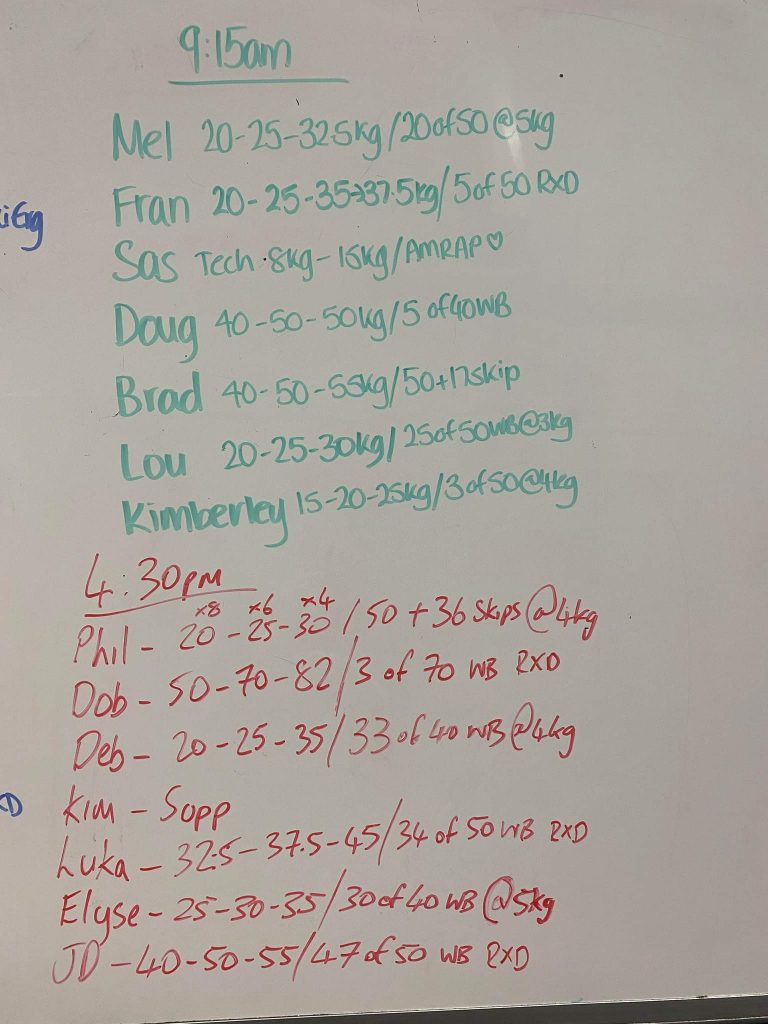 9:15am
Mel 20-25-32.5kg/20of50@5kg
Fran 20-25-35→37.5kg/5of50 RXD
Sas Tech 8kg-15kg/AMRAP♡
Doug 40-50-50kg/5 of40WB
Brad 40-50-55kg/50+17skip
Lou 20-25-30kg/25of50WB@3kg
Kimberley 15-20-25kg/3of50@4kg
4:30pm
x8 x6 x4
Phil - 20-25-30/50+36 skips@4kg
Dob - 50-70-82/3 of 70 WB RXD
Deb - 20-25-35/33 of 40 WB@4kg
Kim - Sopp
Luka - 32.5-37.5-45/34 of 50 WB RXD
Elyse - 25-30-35/30of 40 WB @5kg
JD - 40-50-55/47 of 50 WB RXD